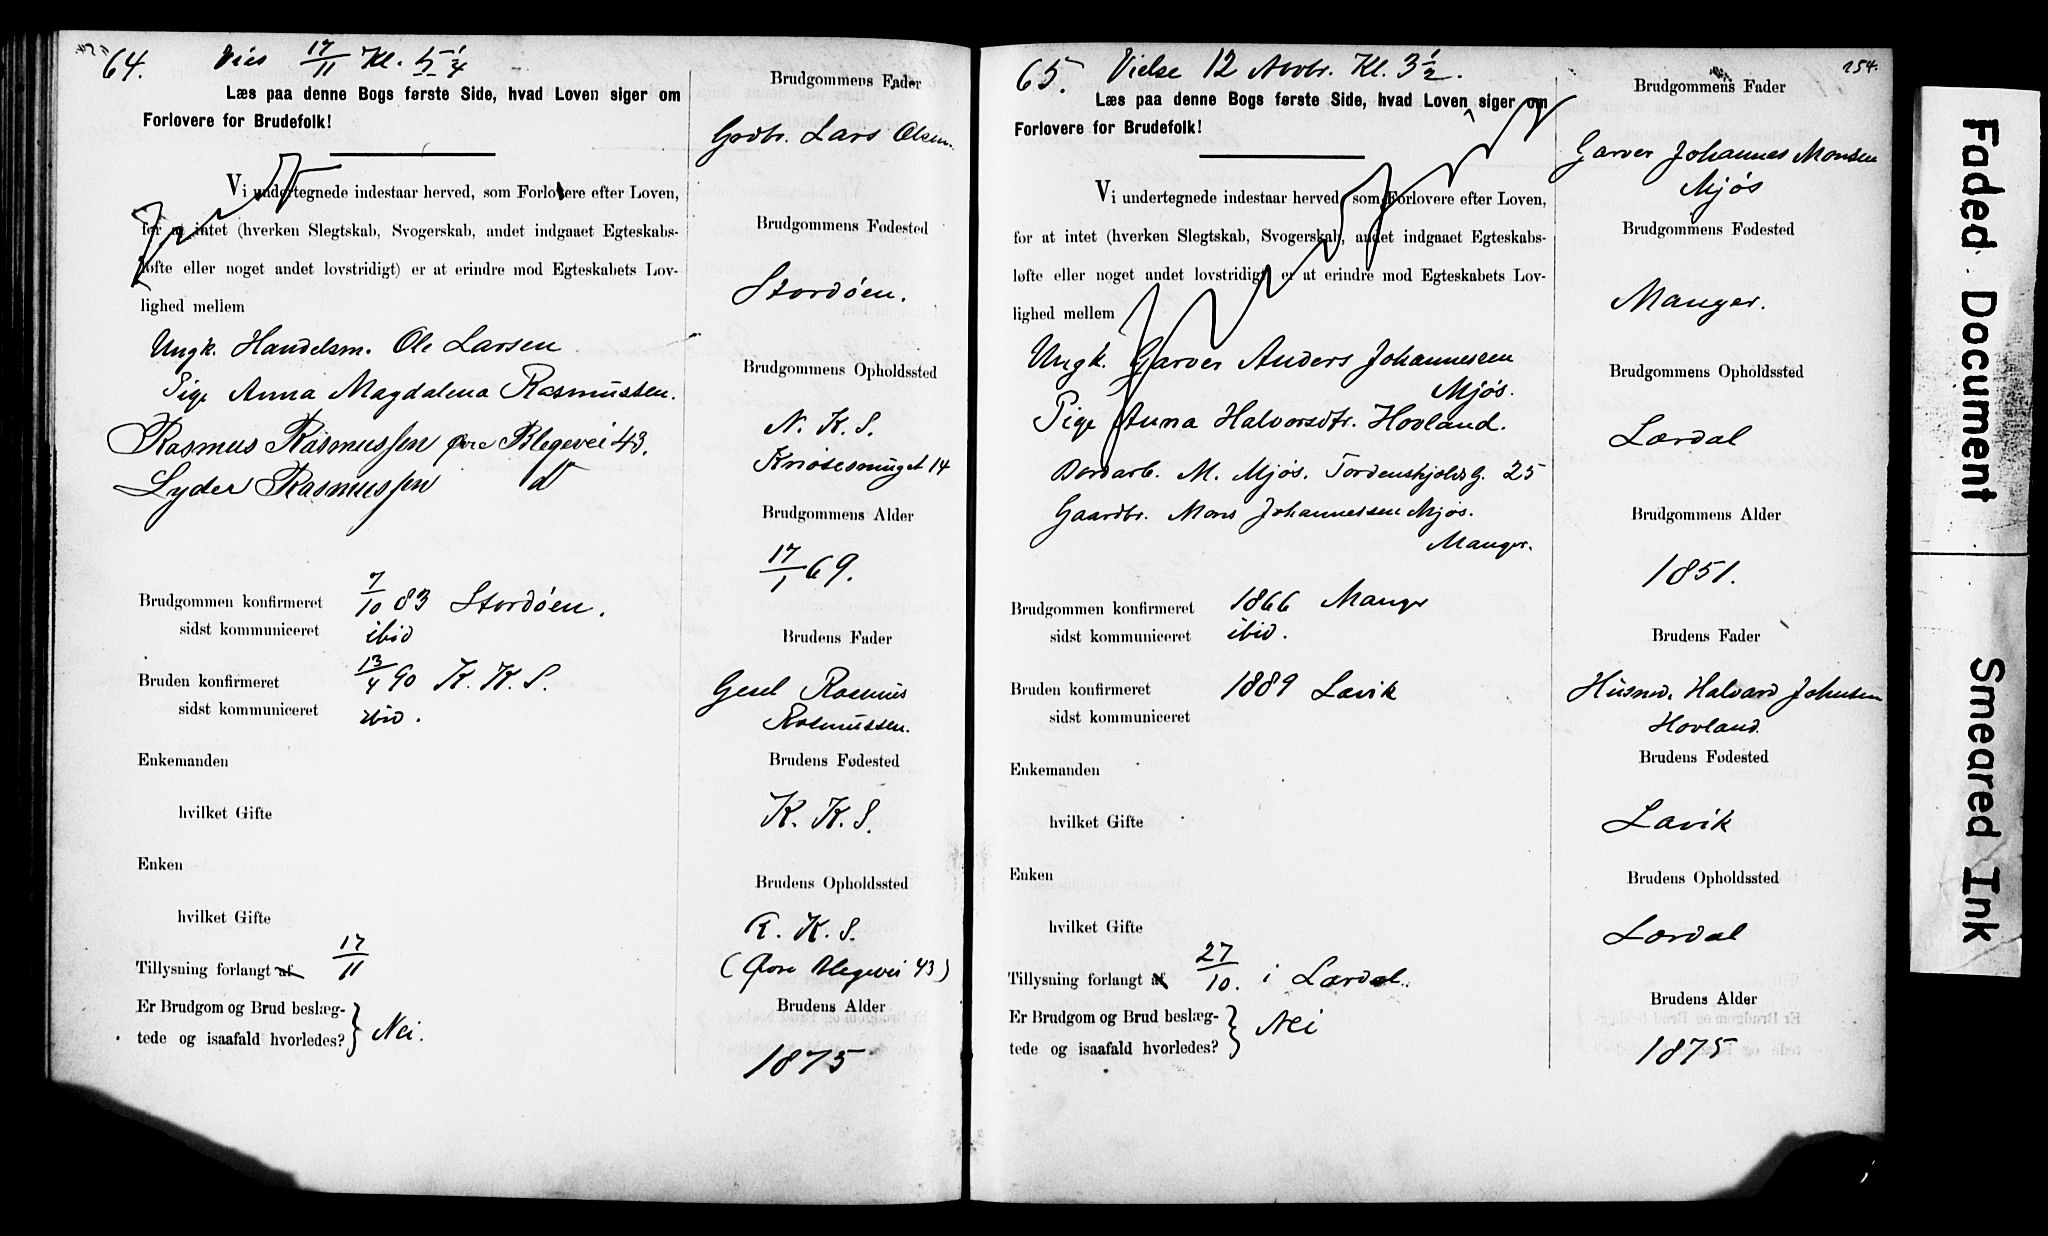 64. Vies 17/11 Kl. 5 1/4
Læs paa denne Bogs første Side, hvad Loven siger om
Forlovere for Brudefolk!
Vi undertegnede indestaar herved, som Forlovere efter Loven,
for at intet (hverken Slegtskab, Svogerskab, andet indgaaet Egteskabs-
løfte eller noget andet lovstridigt) er at erindre mod Egteskabets Lov-
lighed mellem
Ungk. Handelsm. Ole Larsen
Pige Anna Magdalena Rasmussen.
Rasmus Rasmussen Øvre Blegevei 43.
Lyder Rasmussen do
Brudgommen konfirmeret 7/10 83 Stordøen.
sidst kommuniceret ibid
Bruden konfirmeret 13/4 90 K. K. S.
sidst kommuniceret ibid.
Enkemanden
hvilket Gifte
Enken
hvilket Gifte
Tillysning forlangt af 17/11
Er Brudgom og Brud beslæg-
tede og isaafald hvorledes? } Nei.
Brudgommens Fader
Grdbr. Lars Olsen.
Brudgommens Fødested
Stordøen.
Brudgommens Opholdssted
N. K. S.
Knøsesmuget 14
Brudgommens Alder
17/1 69.
Brudens Fader
Gesel Rasmus
Rasmussen.
Brudens Fødested
K. K. S.
Brudens Opholdssted
K. K. S.
(Øvre Blegevei 43)
Brudens Alder
1875
65. Vielse 12 Novbr. Kl. 3 1/2.
Læs paa denne Bogs første Side, hvad Loven siger om
Forlovere for Brudefolk!
Vi undertegnede indestaar herved, som Forlovere efter Loven,
for at intet (hverken Slegtskab, Svogerskab, andet indgaaet Egteskabs-
løfte eller noget andet lovstridigt) er at erindre mod Egteskabets Lov-
lighed mellem
Ungk. Garver Anders Johannessen
Mjøs.
Pige Anna Halvorsdtr. Hovland.
Bordarb. M. Mjøs. Tordenskjoldsg. 25
Gaardbr. Mons Johannessen Mjøs.
Manger.
Brudgommen konfirmeret 1866 Manger
sidst kommuniceret ibid.
Bruden konfirmeret 1889 Lavik
sidst kommuniceret
Enkemanden
hvilket Gifte
Enken
hvilket Gifte
Tillysning forlangt af 27/10. i Lærdal.
Er Brudgom og Brud beslæg-
tede og isaafald hvorledes? } Nei
254.
Brudgommens Fader
Garver Johannes Monsen
Mjøs
Brudgommens Fødested
Manger.
Brudgommens Opholdssted
Lærdal
Brudgommens Alder
1851.
Brudens Fader
Husmd. Halvard Johnsen
Hovland.
Brudens Fødested
Lavik
Brudens Opholdssted
Lærdal
Brudens Alder
1875
Faded Document
Smeared Ink